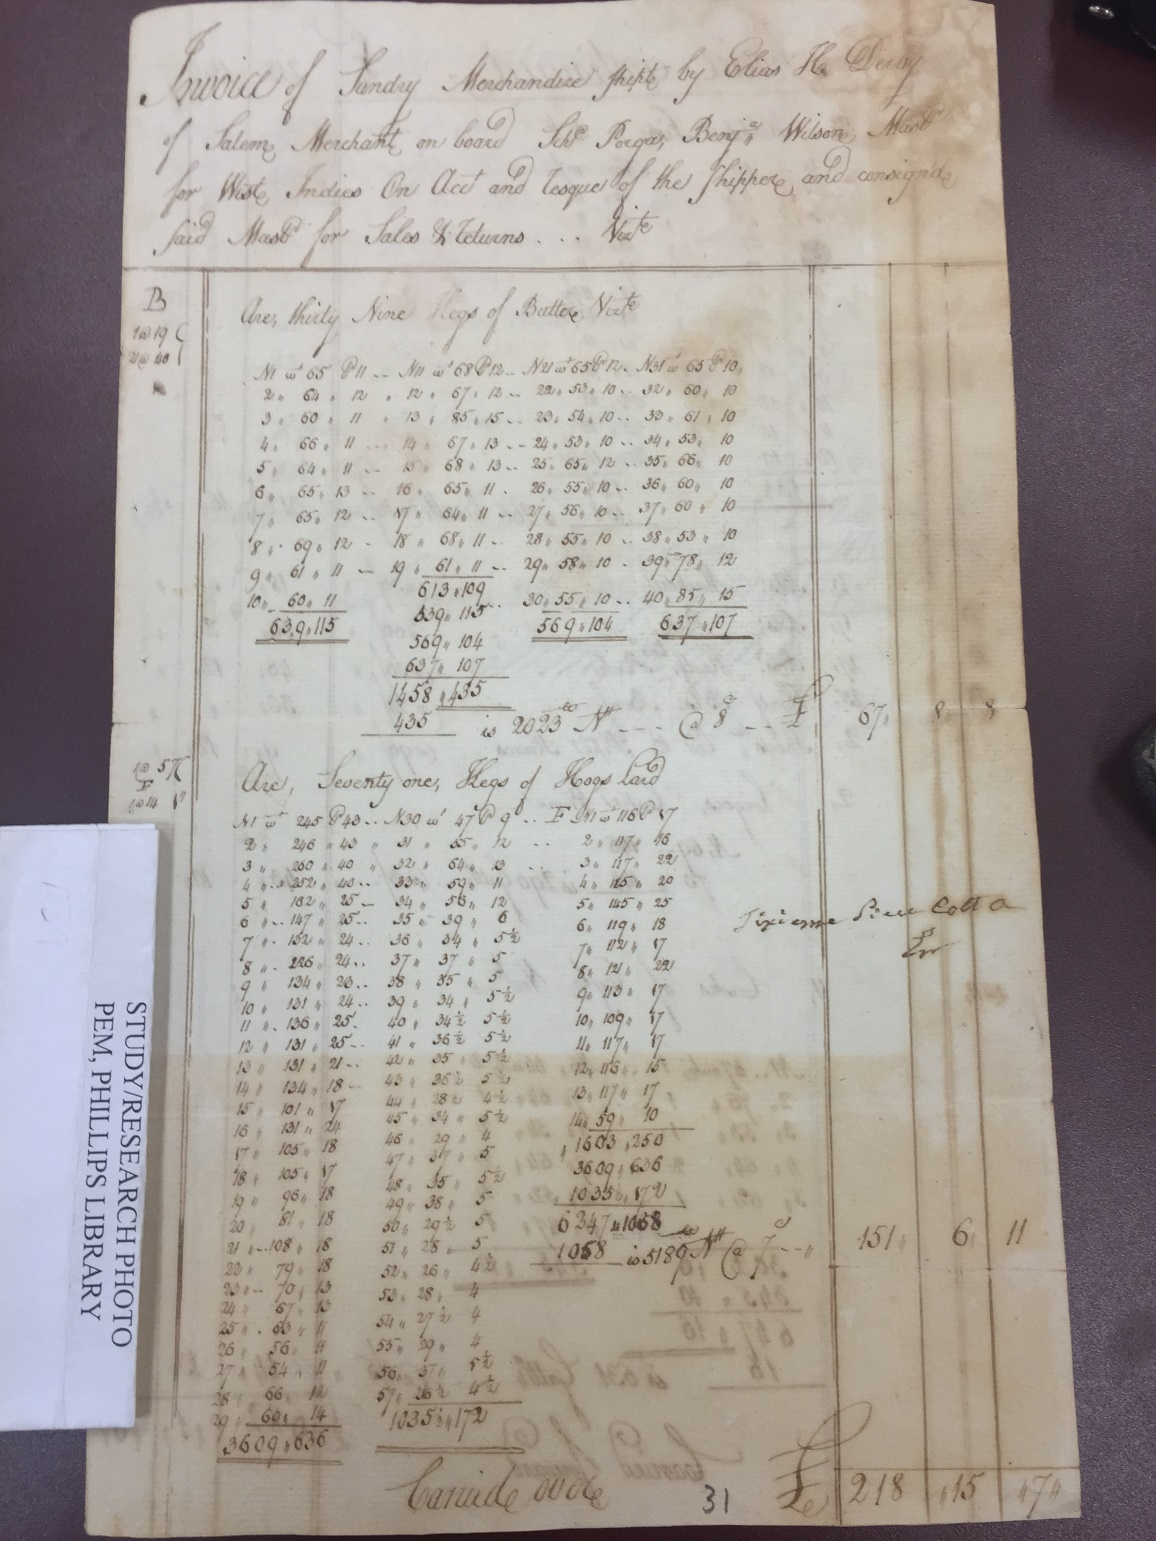 Invoice of Sundry Merchandize shipt by Elias H. Derby
of Salem Merchant on board Schr Benja Wilson, Mastr
for West Indies On Acct and resque of the Shipper and consign'd
said Mastr for Sales & returns ... Vizt
B
1 @ 19
21 @ 40
Are, thirty Nine Kegs of Butter, Vizt
N1 wt 65 P 11 .. N11 wt 68 P 12 .. N21 wt 65 P 12 .. N31 wt 65 P 10
2 " 64 " 12 " 12 " 67 " 12 .. 22 " 53 " 10 .. 32 " 60 " 10
3 " 60 " 11 " 13 " 85 " 15 .. 23 " 54 " 10 .. 33 " 61 " 10
4 " 66 " 11 .. 14 " 67 " 13 .. 24 " 53 " 10 .. 34 " 53 " 10
5 " 64 " 11 .. 15 " 68 " 13 .. 25 " 65 " 12 .. 35 " 66 " 10
6 " 65 " 13 .. 16 " 65 " 11 .. 26 " 55 " 10 .. 36 " 60 " 10
7 " 65 " 12 .. 17 " 64 " 11 .. 27 " 56 " 10 .. 37 " 60 " 10
8 " 69 " 12 .. 18 " 68 " 11 .. 28 " 55 " 10 .. 38 " 53 " 10
9 " 61 " 11 .. 19 " 61 " 11 .. 29 " 58 " 10 .. 39 " 78 " 12
10 " 60 " 11 613 " 109 30 " 55 " 10 .. 40 " 85 " 15
639 " 115 639 " 115 569 " 104 637 " 107
569 " 104
637 " 107
1458 " 435
435 is 2023 lb Nt @ 8d £ 67 " 8 " 8
1 @ 57
F
1 @ 14
Are, Seventy one, Kegs of Hoggs lard
N1 wt 245 P 43 .. N30 wt 47 P 9 .. F N1 wt 116 P 17
2 " 246 " 43 " 31 " 55 " 12 .. 2 " 117 " 16
3 " 260 " 40 " 32 " 64 " 13 .. 3 " 117 " 22
4 " 252 " 40 .. 33 " 59 " 11 4 " 115 " 20
5 " 182 " 25 .. 34 " 56 " 12 5 " 145 " 25
6 " 147 " 25 .. 35 " 39 " 6 6 " 119 " 18
7 " 152 " 24 .. 36 " 34 " 5½ 7 " 112 " 17
8 " 226 " 24 .. 37 " 37 " 5 8 " 121 " 22
9 " 134 " 23 .. 38 " 35 " 5 9 " 113 " 17
10 " 131 " 24 .. 39 " 34 " 5½ 10 " 109 " 17
11 " 136 " 25 40 " 34½ 5½ 11 " 117 " 17
12 " 131 " 25 .. 41 " 36½ 5½ 12 " 116 " 15
13 " 131 " 21 .. 42 " 35 " 5½ 13 " 117 " 17
14 " 134 " 18 .. 43 " 36½ 5½ 14 " 59 " 10
15 " 101 " 17 44 " 28½ 4½ 1603 " 250
16 " 131 " 24 45 " 34 " 5½ 3609 " 636
17 " 105 " 18 46 " 29 " 4 1035½ " 172
18 " 105 " 17 47 " 37 " 5 6247 " 1058
19 " 96 " 18 48 " 35 " 5½ 1058 is 5189 lb Nt @ 7d 151 " 6 " 11
20 " 81 " 18 49 " 38 " 5
21 .. 108 " 18 50 " 29½ 5
22 " 79 " 18 51 " 28 " 5
23 .. 70 " 13 52 " 26 " 4½
24 " 67 " 13 53 " 28 " 4
25 " 63 " 11 54 " 27½ 4
26 " 56 " 11 55 " 29 " 4
27 " 54 " 11 56 " 37 " 5½
28 " 66 " 12 57 " 26½ 4½
29 " 60 " 14 1035½ " 172
3609 " 636
Carried over £ 218 " 15 " 7 "
31
STUDY/RESEARCH PHOTO
PEM, PHILLIPS LIBRARY